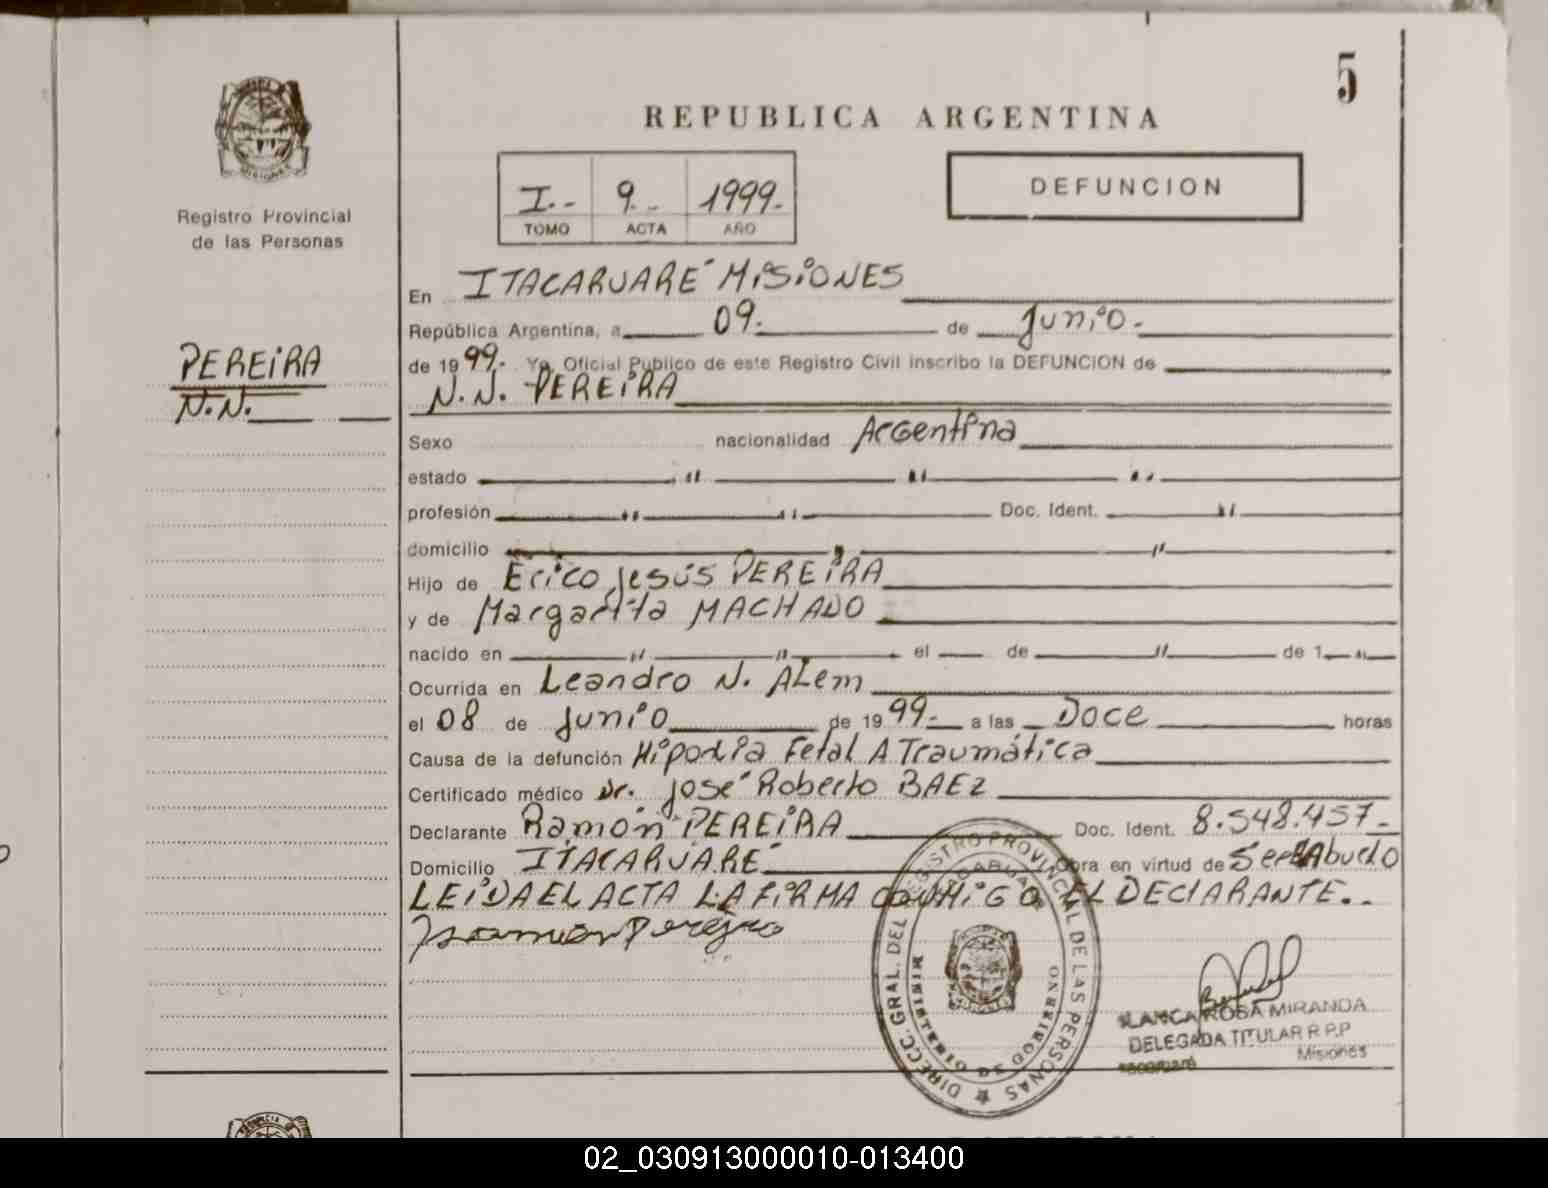 5
REPUBLICA ARGENTINA
I.- 9.- 1999.-
TOMO ACTA AÑO
DEFUNCION
MISIONES
Registro Provincial
de las Personas
PEREIRA
N.N.
En ITACARUARÉ MISIONES
República Argentina, a 09. de Junio.-
de 1999.- Yo, Oficial Público de este Registro Civil inscribo la DEFUNCION de
N.N. PEREIRA
Sexo nacionalidad Argentina
estado " " "
profesión " " Doc. Ident. "
domicilio " "
Hijo de Erico Jesús PEREIRA
y de Margarita MACHADO
nacido en " " el de " de 1 "
Ocurrida en Leandro N. ALem
el 08 de junio de 1999.- a las Doce horas
Causa de la defunción Hipoxia Fetal A Traumática
Certificado médico Dr. José Roberto BAEZ
Declarante Ramón PEREIRA Doc. Ident. 8.548.457.-
Domicilio ITACARUARÉ Obra en virtud de Ser Abuelo
LEIDA EL ACTA LA FIRMA CONMIGO EL DECLARANTE..
Ramon Pereira
DIRECC. GRAL. DEL REGISTRO PROVINCIAL DE LAS PERSONAS
MINISTERIO DE GOBIERNO
BLANCA ROSA MIRANDA
DELEGADA TITULAR R.P.P
Misiones
02_030913000010-013400